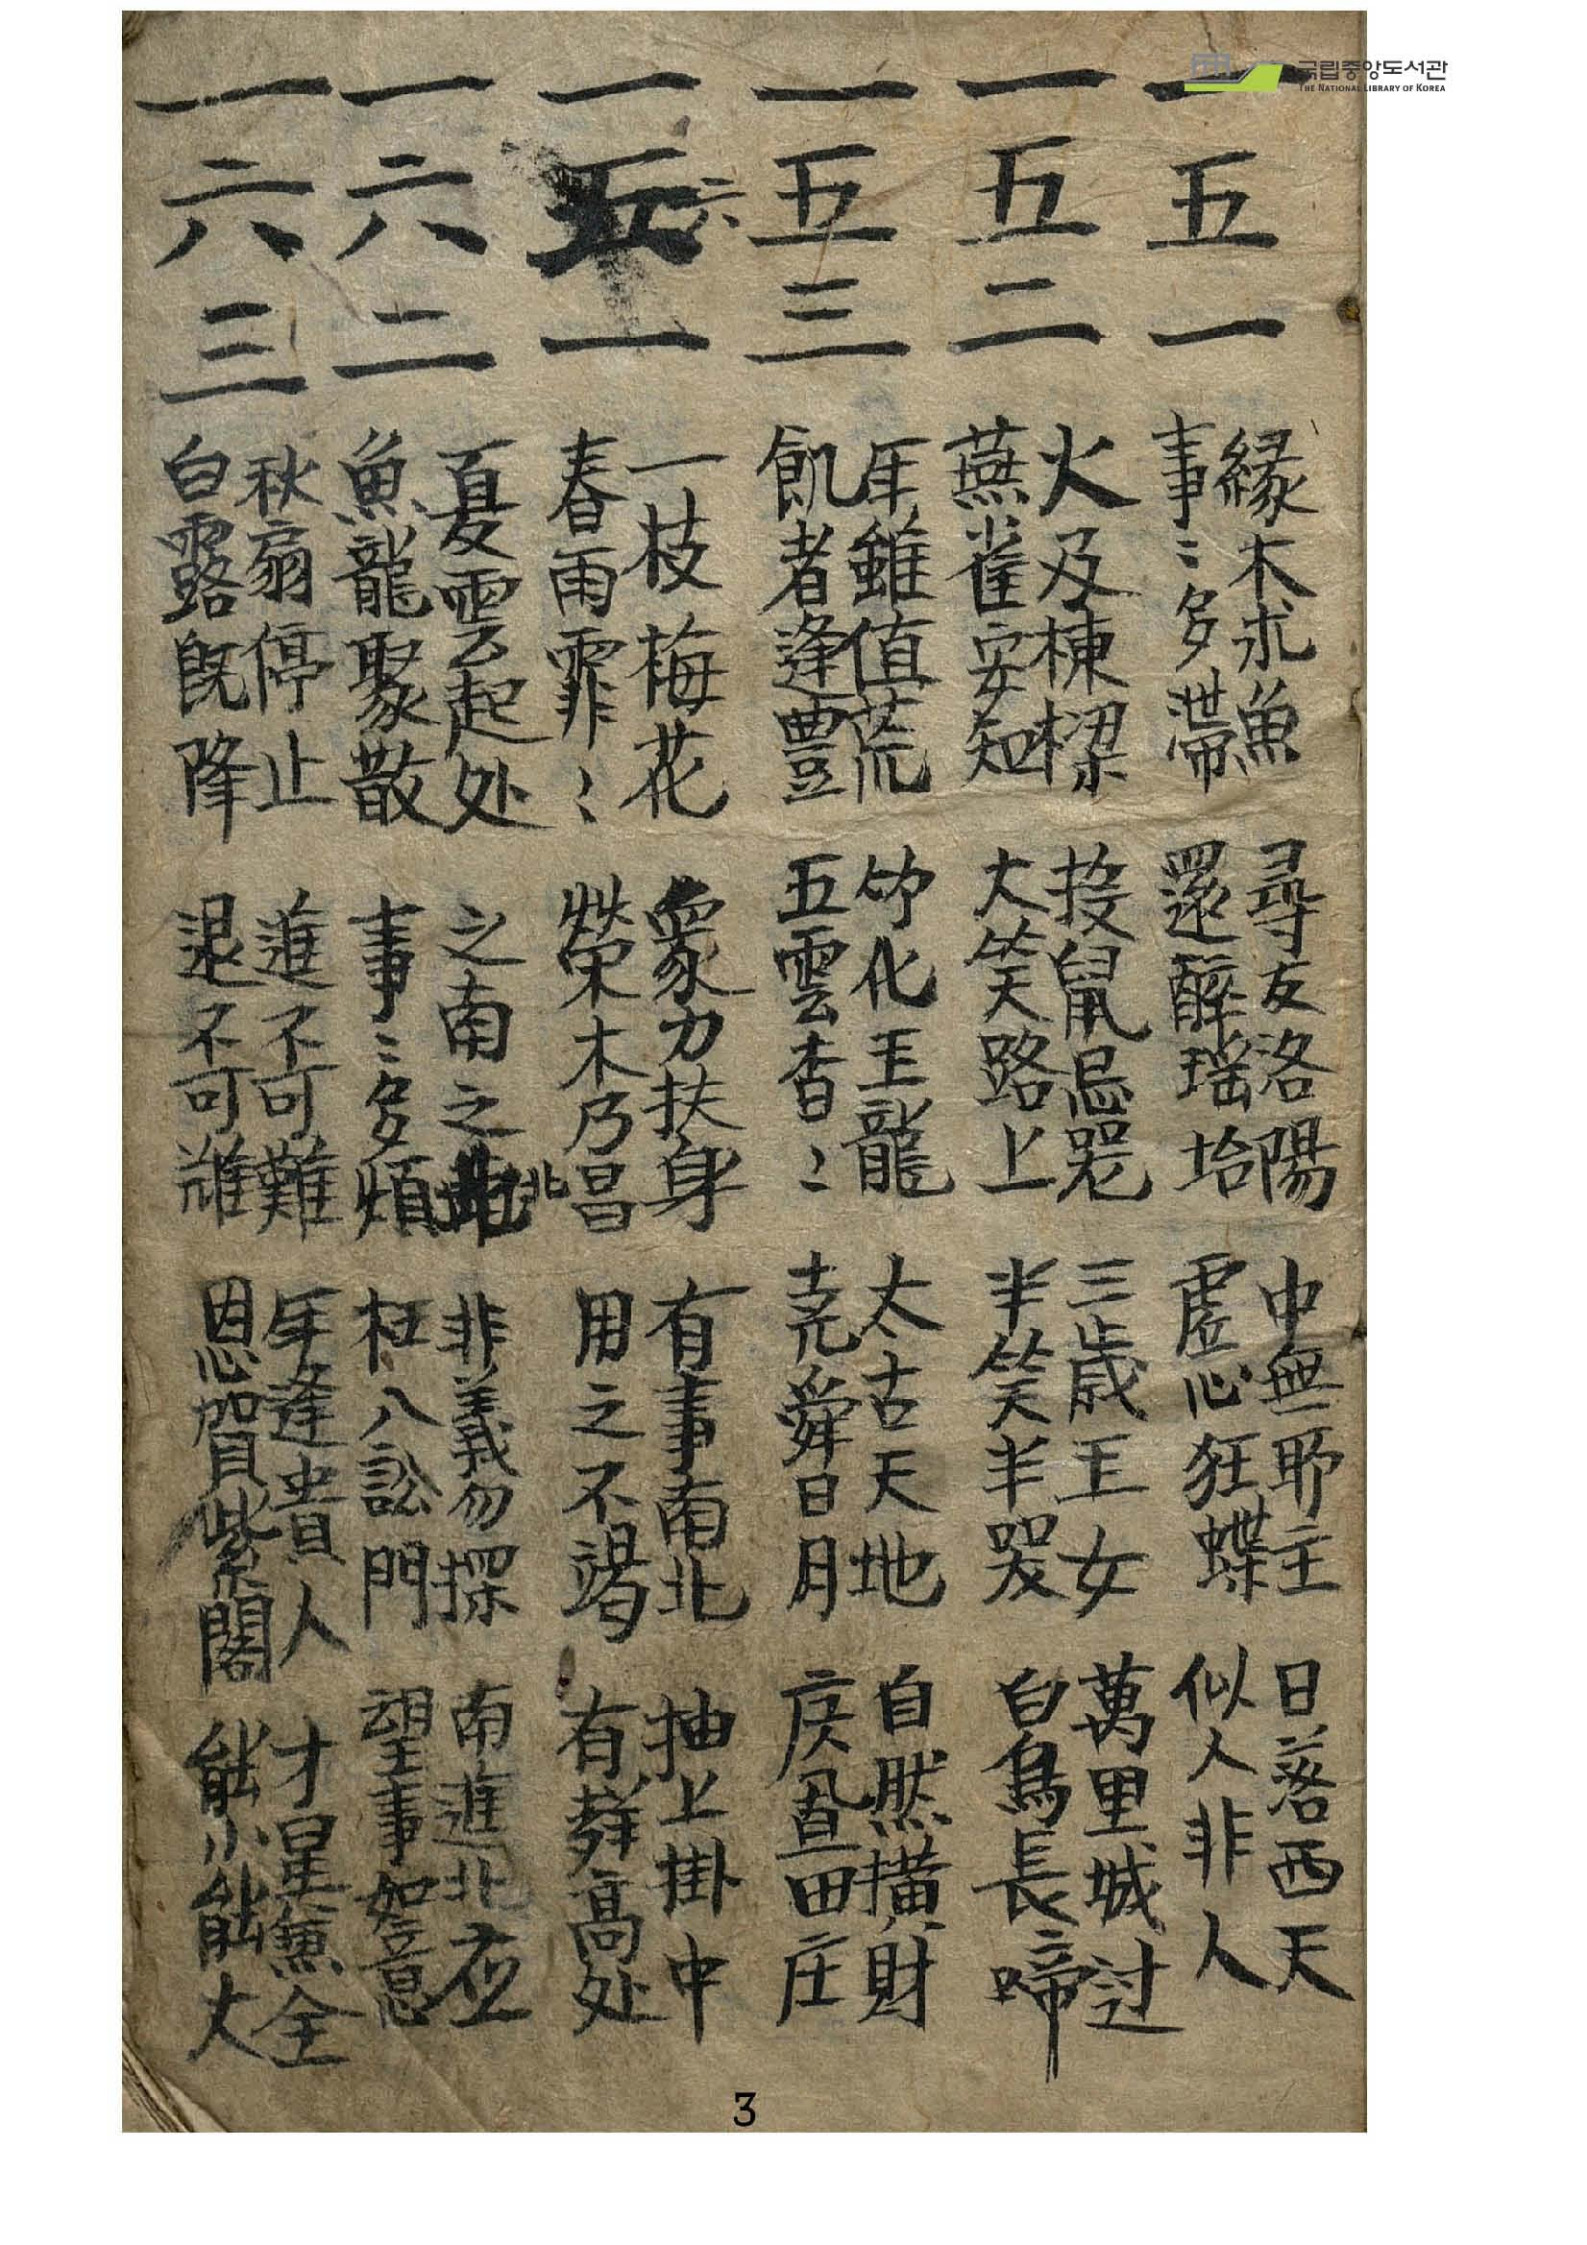 국립중앙도서관
THE NATIONAL LIBRARY OF KOREA
一五一
緣木求魚 尋友洛陽 中無耶主 日落西天
事〻多滯 還醉瑶坮 虛心狂蝶 似人非人
一五二
火及棟樑 投鼠忌器 三歲王女 萬里城过
燕雀安知 大笑路上 半笑半哭 白鳥長啼
一五三
年雖值荒 竹化王龍 太古天地 自然橫財
飢者逢豊 五雲杳〻 堯舜日月 庆置田庄
一六一
一枝梅花 衆力扶身 有事南北 抽上掛中
春雨霏〻 榮木乃昌 用之不竭 有辤高处
一六二
夏雲起处 之南之北 非義勿探 南進北应
魚龍聚散 事〻多煩 枉入訟門 望事如意
一六三
秋扇停止 進不可難 年逢貴人 才星兼全
白露旣降 退不可難 恩賀紫閣 能小能大
3